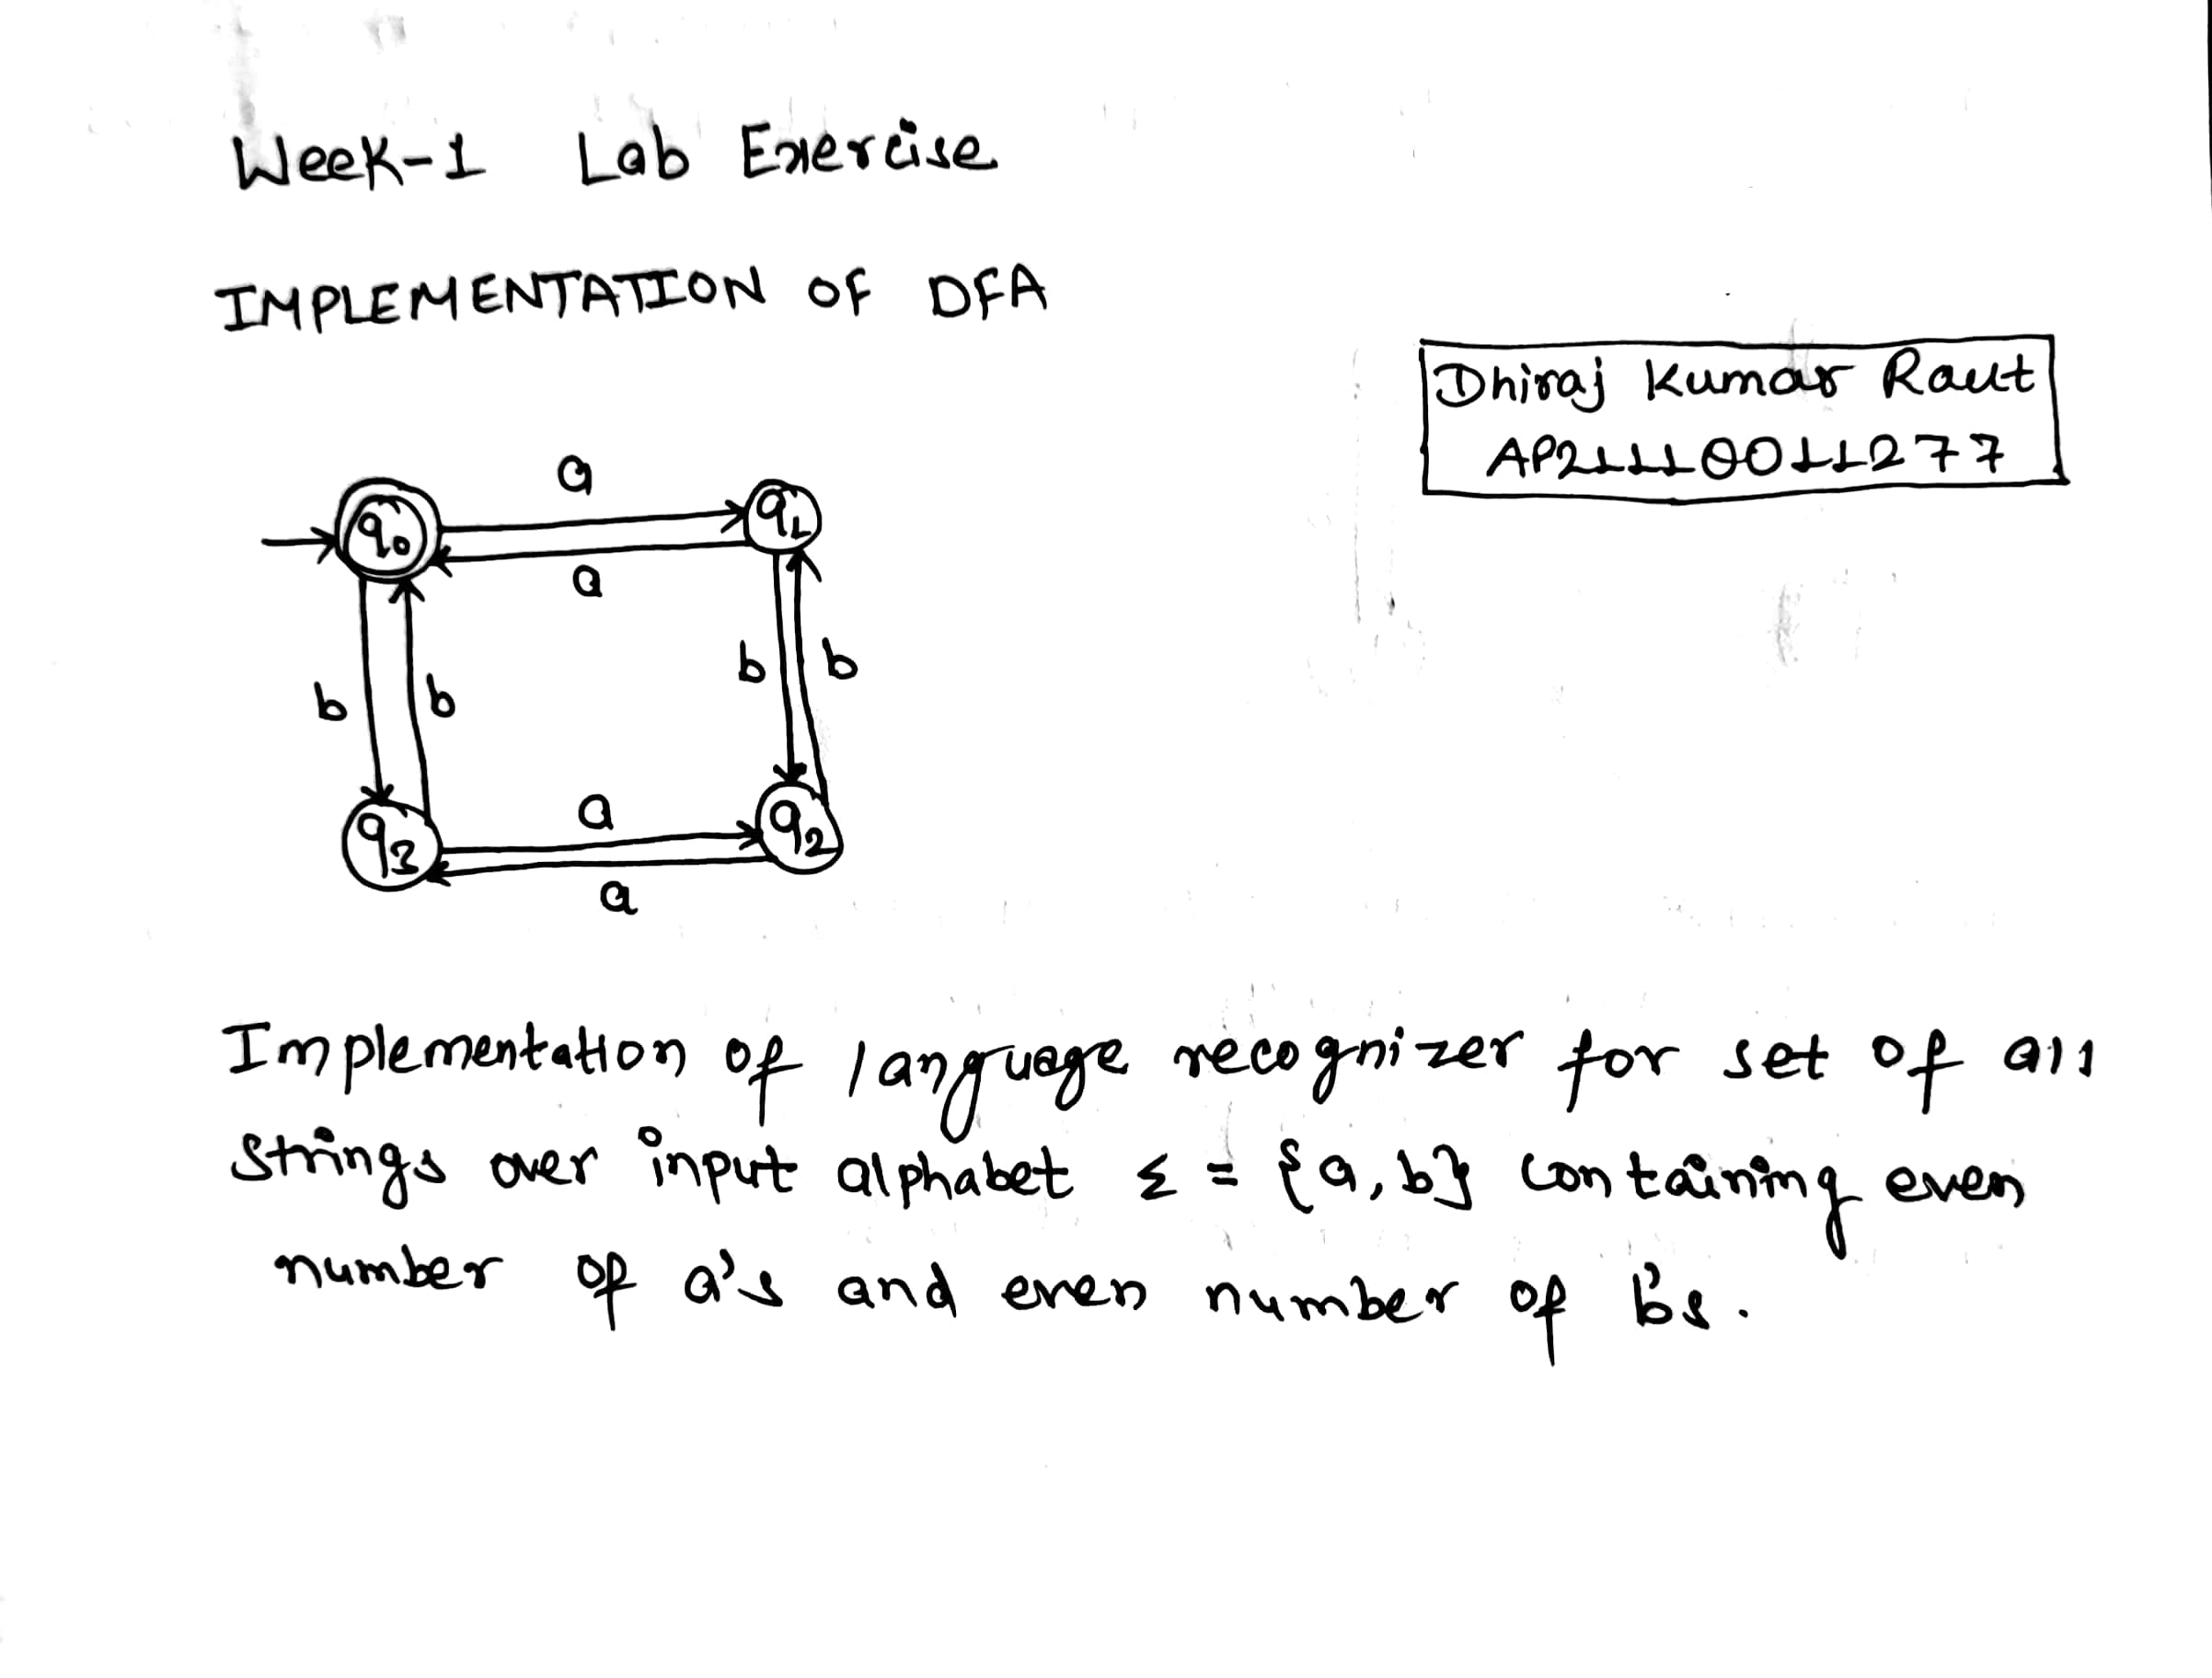 Week-1 Lab Exercise
IMPLEMENTATION OF DFA
Dhiraj Kumar Raut
AP21110011277
a
q0
q1
a
b
b
b
b
a
q3
q2
a
Implementation of language recognizer for set of all
strings over input alphabet Σ = {a, b} containing even
number of a's and even number of b's.